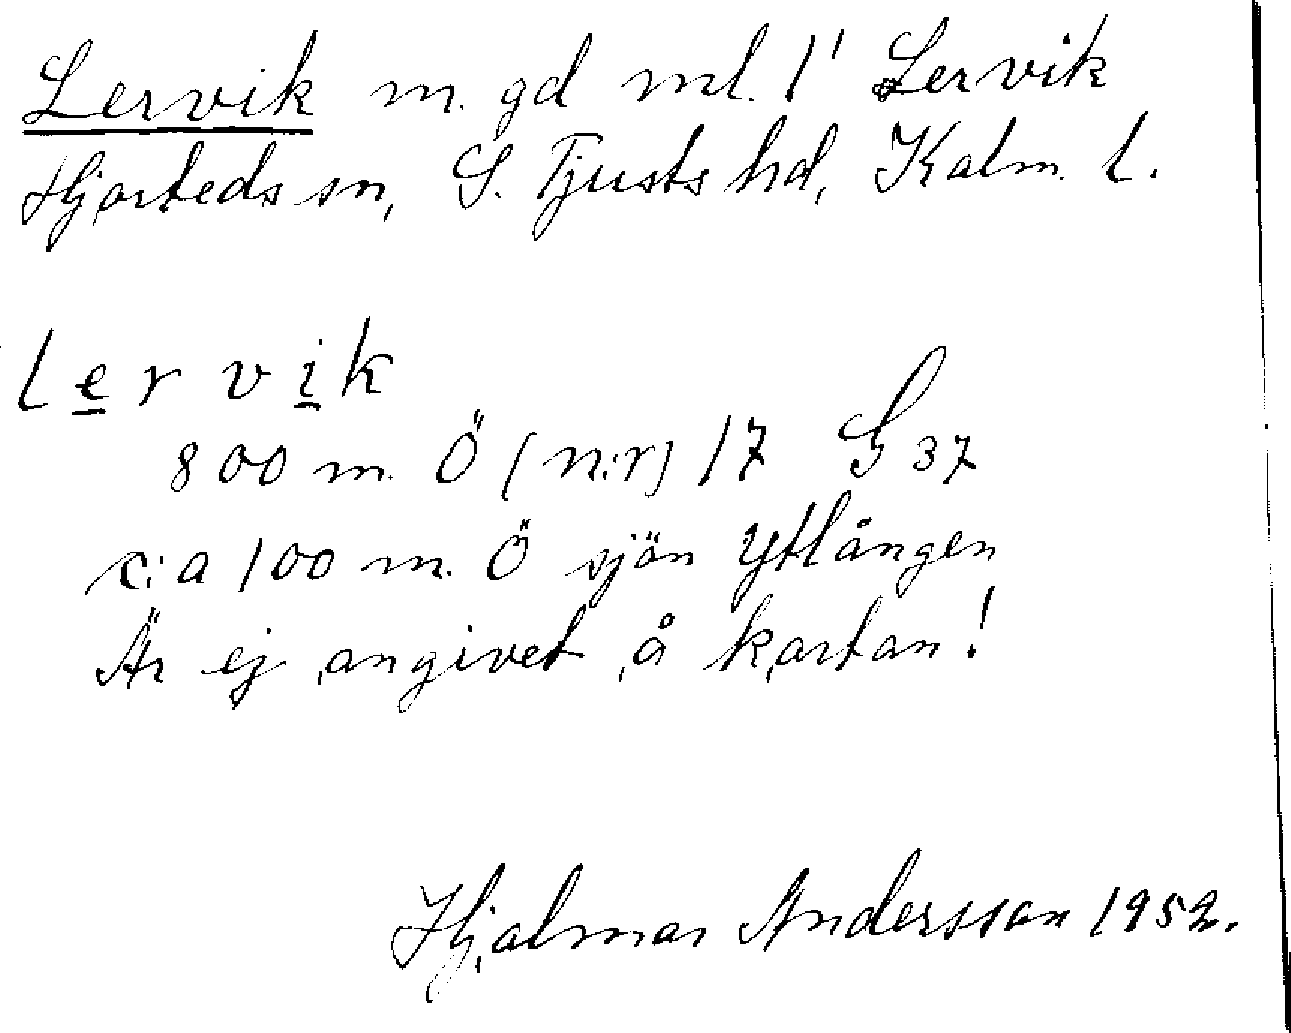 Lervik m. gd ml. 1' Lervik
Hjorteds sn, S. Tjusts hd, Kalm. l.
lervik
800 m. Ö (n:r) 17 G 37
c:a 100 m. Ö sjön Ytlången
Är ej angivet å kartan!
Hjalmar Andersson 1952.